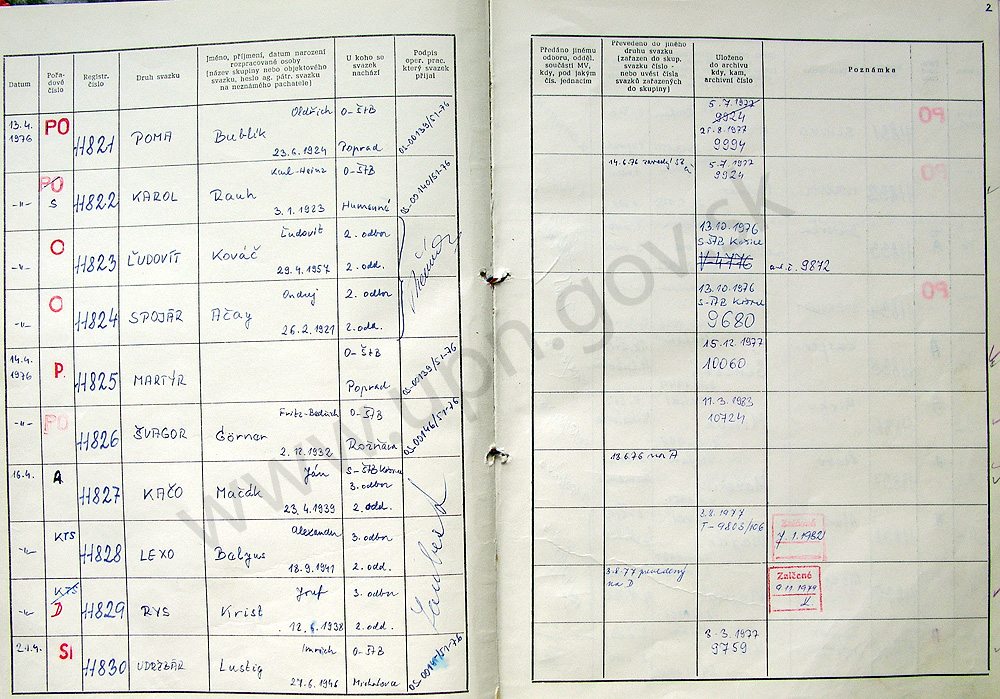 2
Datum
Pořa-
dové
číslo
Registr.
číslo
Druh svazku
Jméno, příjmení, datum narození
rozpracované osoby
(název skupiny nebo objektového
svazku, heslo ag. pátr. svazku
na neznámého pachatele)
U koho se
svazek
nachází
Podpis
oper. prac.
který svazek
přijal
Předáno jinému
odboru, odděl.
součásti MV,
kdy, pod jakým
čís. jednacím
Převedeno do jiného
druhu svazku
(zařazen do skup.
svazku číslo -
nebo uvést čísla
svazků zařazených
do skupiny)
Uloženo
do archivu
kdy, kam,
archivní číslo
Poznámka
13.4.
1976
PO
11821
POMA
Oldřich
Bublík
23.6.1924
O-ŠtB
Poprad
OS-00139/51-76
5.7.1977
9924
25.8.1977
9994
-"-
PO
S
11822
KAROL
Karl-Heinz
Rauh
3.1.1923
O-ŠtB
Humenné
OS-00140/51-76
5.7.1977
9924
-"-
O
11823
ĽUDOVÍT
Ľudovít
Kováč
29.4.1957
2. odbor
2. odd.
13.10.1976
S-ŠtB Košice
V-4776
arch. č. 9872
-"-
O
11824
SPOJÁR
Ondrej
Ačay
26.2.1921
2. odbor
2. odd.
13.10.1976
S-ŠtB Košice
9680
14.4.
1976
P
11825
MARTÝR
O-ŠtB
Poprad
OS-00139/51-76
15.12.1977
10060
-"-
PO
11826
ŠVAGOR
Görner
2.12.1932
O-ŠtB
Rožňava
OS-00146/51-76
11.3.1983
10724
16.4.
A
11827
KAČO
Ján
Mačák
23.4.1939
S-ŠtB Košice
3. odbor
2. odd.
18.6.76 A
-"-
KTS
11828
LEXO
Alexander
Balyus
18.9.1941
3. odbor
2. odd.
3.8.1977
T-9803/106
7.1.1982
-"-
KTS
D
11829
RYS
Jozef
Krist
12.6.1938
3. odbor
2. odd.
3-8-77 prevedený
na D
Zničené
9.11.1979
21.4.
SI
11830
UDRŽBÁR
Imrich
Lustig
27.6.1946
O-ŠtB
Michalovce
OS-00141/51-76
3-3-1977
9759
www.upn.gov.sk